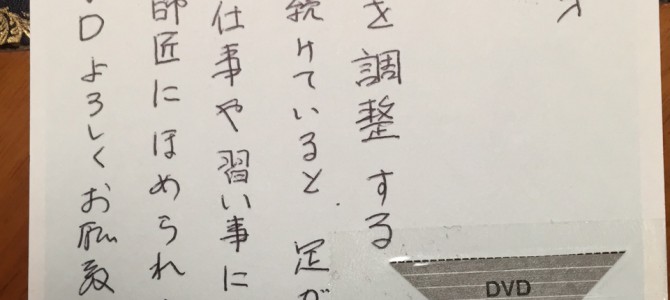 を調整する
続けていると 足が
仕事や習い事に
師匠にほめられ
Dよろしくお願致
DVD